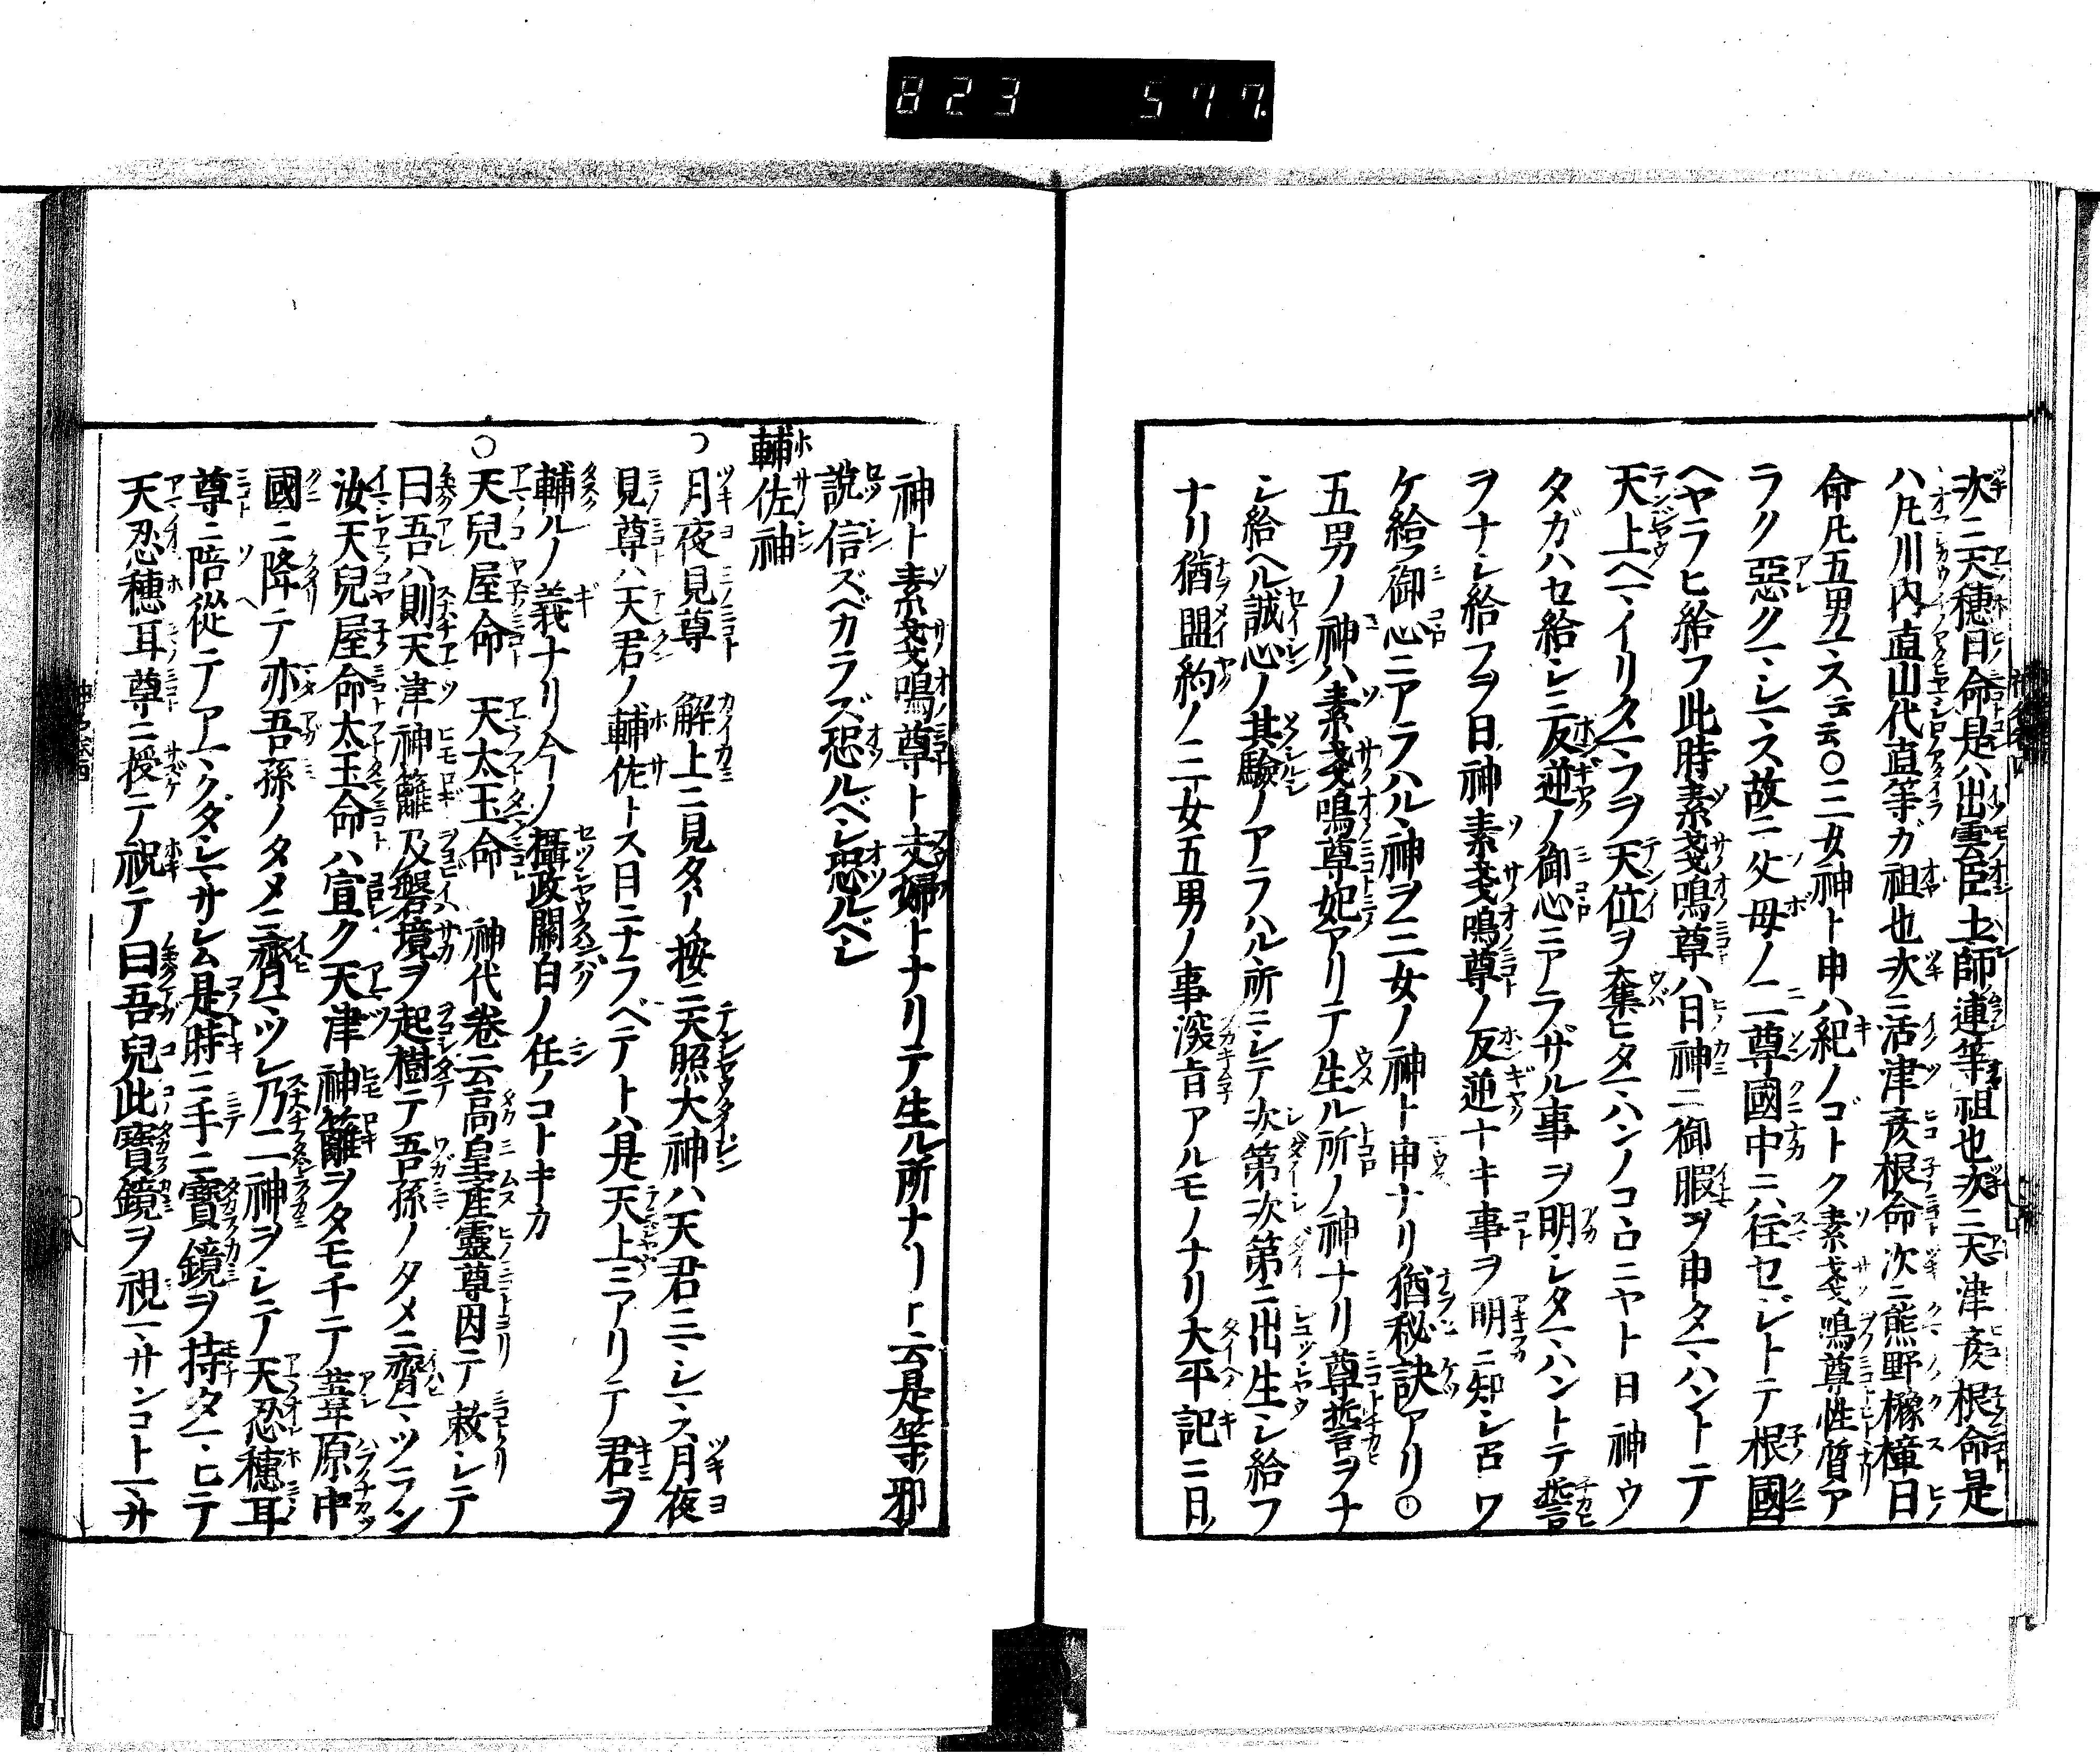 823 577
次ニ天穂日命是ハ出雲臣土師連等祖也次ニ天津彦根命是
ハ凡川内直山代直等ガ祖也次ニ活津彦根命次ニ熊野櫲樟日
命凡五男マス云云〇三女神ト申ハ紀ノゴトク素戔鳴尊性質ア
ラク惡クマシマス故ニ父母ノ二尊國中ニハ住セジトテ根國
ヘヤラヒ給フ此時素戔鳴尊ハ日神ニ御暇ヲ申タマハントテ
天上ヘマイリタマフヲ天位ヲ奪ヒタマハンノコロニヤト日神ウ
タガハセ給シニ反逆ノ御心ニアラザル事ヲ明シタマハントテ誓
ヲナシ給フヲ日神素戔鳴尊ノ反逆ナキ事ヲ明ニ知シロワ
ケ給フ御心ニアラハル神ヲ三女ノ神ト申ナリ猶秘訣アリ〇
五男ノ神ハ素戔鳴尊妃アリテ生ル所ノ神ナリ尊誓ヲナ
シ給ヘル誠心ノ其驗ノアラハル所ニシテ次第次第ニ出生シ給フ
ナリ猶盟約ノ三女五男ノ事深旨アルモノナリ大平記ニ日
神ト素戔鳴尊ト夫婦トナリテ生ル所ナリト云是等邪
説信ズベカラズ恐ルベシ恐ルベシ
輔佐神
月夜見尊 解上ニ見タリ按ニ天照大神ハ天君ニマシマス月夜
見尊ハ天君ノ輔佐トス日ニナラベテトハ是天上ニアリテ君ヲ
輔ルノ義ナリ今ノ攝政關白ノ任ノコトキカ
〇天兒屋命 天太玉命 神代卷云高皇産靈尊因テ敕シテ
曰吾ハ則天津神籬及磐境ヲ起樹テ吾孫ノタメニ齋マツラン
汝天兒屋命太玉命ハ宜ク天津神籬ヲタモチテ葦原中
國ニ降テ亦吾孫ノタメニ齋マツレ乃二神ヲシテ天忍穗耳
尊ニ陪從テアマクダシマサシム是時ニ手ニ寶鏡ヲ持タマヒテ
天忍穗耳尊ニ授テ祝テ曰吾兒此寶鏡ヲ視マサンコトマサ